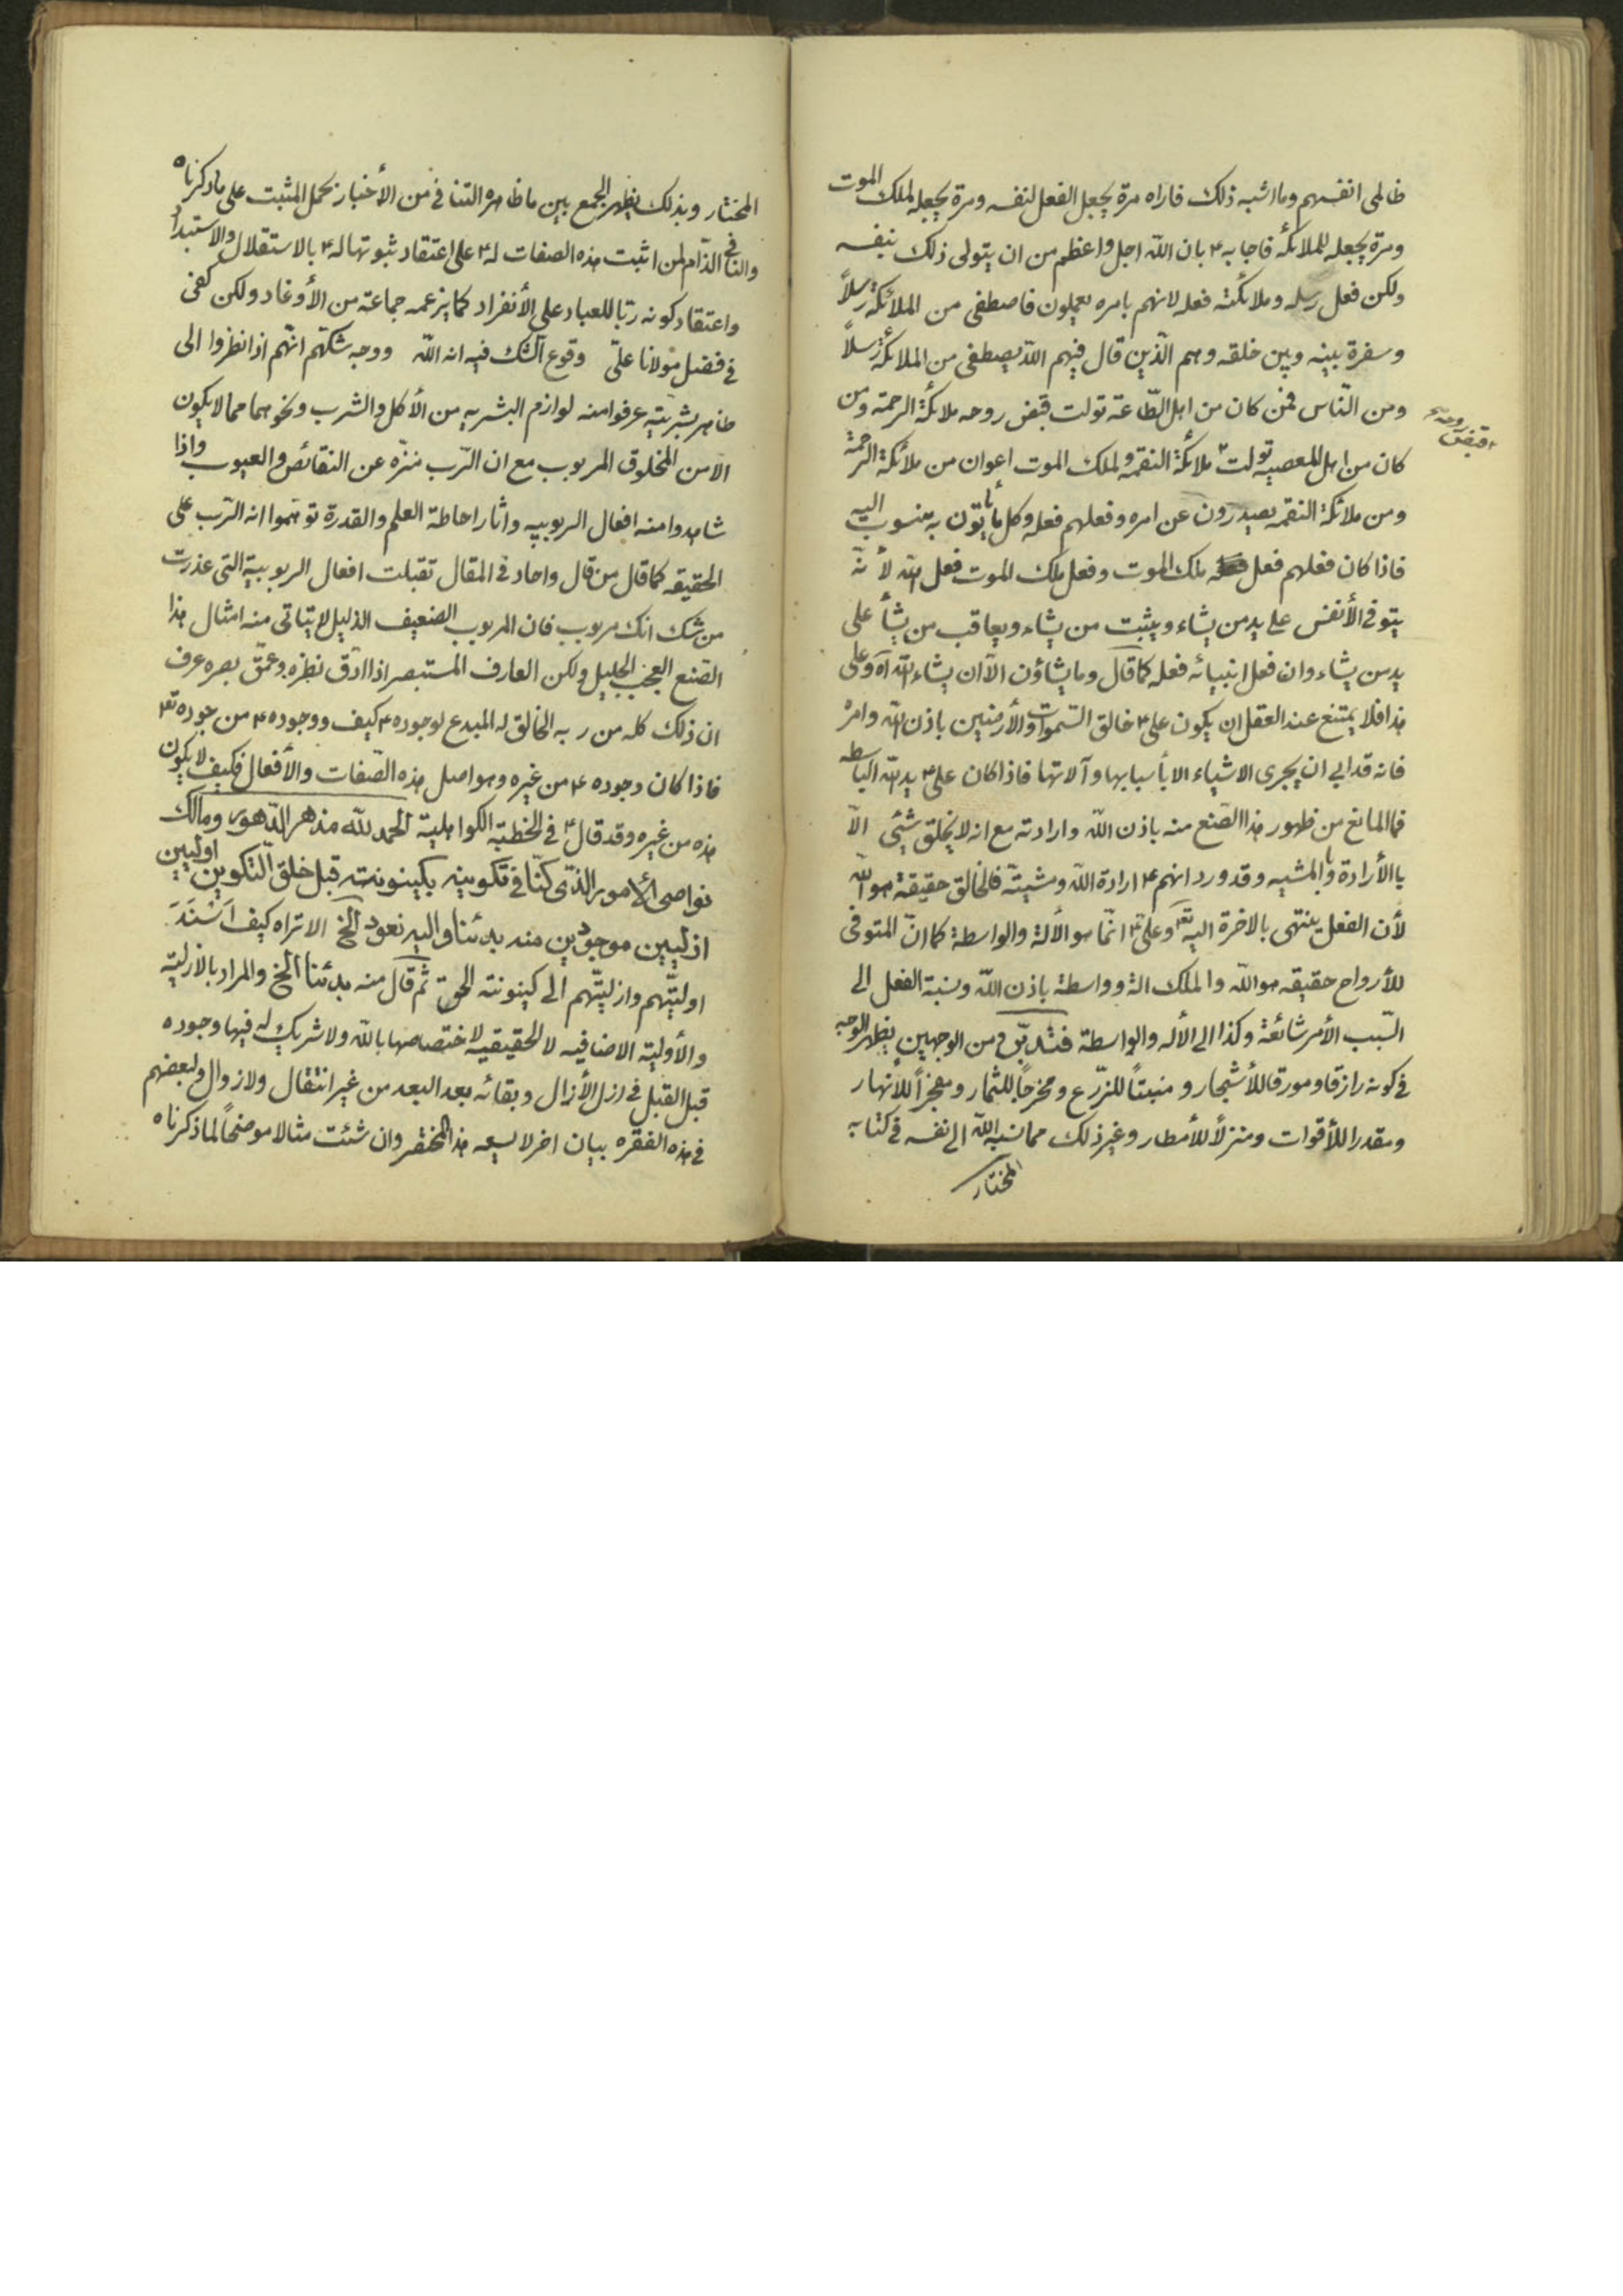 ظالمی انفسهم وما اشبه ذلك فاراه مرة يجعل الفعل لنفسه ومرة يجعله لملك الموت
ومرة يجعله للملائكة فاجابه ۴ بان الله اجل واعظم من ان يتولى ذلك بنفسه
ولكن فعل رسله وملائكته فعله لانهم بامره يعملون فاصطفى من الملائكة رسلاً
وسفرة بينه وبين خلقه وهم الّذين قال فيهم الله يصطفى من الملائكة رسلاً
ومن النّاس فمن كان من اهل الطّاعة تولت قبض روحه ملائكة الرحمة ومن
كان من اهل المعصيه تولت ملائكة النقمه ولملك الموت اعوان من ملائكة الرحمة
قبض روحه
ومن ملائكة النقمه يصدرون عن امره وفعلهم فعله وكل ما يأتون به منسوب اليه
فاذا كان فعلهم فعل ملك الموت وفعل ملك الموت فعل الله لأنّه
يتوفى الأنفس على يد من يشاء ويثبت من يشاء ويعاقب من يشأ على
يد من يشاء وان فعل انبيائه فعله كما قال وما يشاؤن الّا ان يشاء الله آه وعلى
هذا فلا يمتنع عند العقل ان يكون على ۴ خالق السّموات والأرضين باذن الله وامره
فانه قد ابى ان يجرى الاشياء الا بأسبابها وآلاتها فاذا كان على ۴ يد الله الباسطه
فما المانع من ظهور هذا الصّنع منه باذن الله وارادته مع انه لا يخلق شيئى الّا
بالأرادة والمشيه وقد ورد انهم ۴ ارادة الله ومشيته فالخالق حقيقة هو الله
لأن الفعل ينتهى بالاخرة اليه تع وعلى ۴ انّما هو الألة والواسطة كما انّ المتوفى
للأرواح حقيقه هو الله والملك الة وواسطة باذن الله ونسبة الفعل الى
السّبب الأمر شائعة وكذا الى الأله والواسطة فتدبّر ومن الوجهين يظهر الوجه
فى كونه رازقا ومورقا للأشجار ومنبتاً للزّرع ومخرجاً للثمار ومفجّراً للأنهار
ومقدرا للأقوات ومنزلاً للأمطار وغير ذلك مما نسبه الله الى نفسه فى كتابه
المختار
المختار وبذلك يظهر الجمع بين ما ظاهره التنافى من الأخبار بحمل المثبت على ما ذكرناه
والنافى الذّام لمن اثبت هذه الصفات له ۴ على اعتقاد ثبوتها له ۴ بالاستقلال والاستبداد
واعتقاد كونه ربّا للعباد على الأنفراد كما يزعمه جماعة من الأوغاد ولكن كفى
فى فضل مولانا علىّ وقوع الشك فيه انه الله ووجه شكهم انّهم اذا نظروا الى
ظاهر بشريته عرفوا منه لوازم البشريه من الأكل والشرب ونحوهما مما لا يكون
الا من المخلوق المربوب مع ان الرّب منزّه عن النقائص والعيوب واذا
شاهدوا منه افعال الربوبيه واثار احاطة العلم والقدرة توهّموا انه الرّب على
الحقيقه كما قال من قال واجاد فى المقال تقبلت افعال الربوبية التى عذرت
من شك انك مربوب فان المربوب الضعيف الذليل لا يتاتى منه امثال هذا
الصّنع العجب الجليل ولكن العارف المستبصر اذا ادّق نظره وعمّق بصره عرف
ان ذلك كله من ربه الخالق له المبدع لوجوده ۴ كيف ووجوده ۴ من جوده تع
فاذا كان وجوده ۴ من غيره وهو اصل هذه الصّفات والأفعال فكيف لا يكون
هذه من غيره وقد قال ۴ فى الخطبة الكواهلية الحمد لله مدهر الدّهور ومالك
نواصى الأمور الذّى كنّا فى تكوينه بكينونته قبل خلق التكوين اوليين
ازليين موجودين منه بدئنا واليه نعود الخ الا تراه كيف اَسْنَدَ
اوليّتهم وازليّتهم الى كينونته الحق ثم قال منه بدئنا الخ والمراد بالازليّه
والأوليّه الاضافيه لا الحقيقيه لاختصاصها بالله ولا شريك له فيها وجوده
قبل القبل فى ازل الأزال وبقائه بعد البعد من غير انتقال ولا زوال ولبعضهم
فى هذه الفقره بيان اخر لا يسعه هذا المختصر وان شئت مثالا موضحاً لما ذكرناه